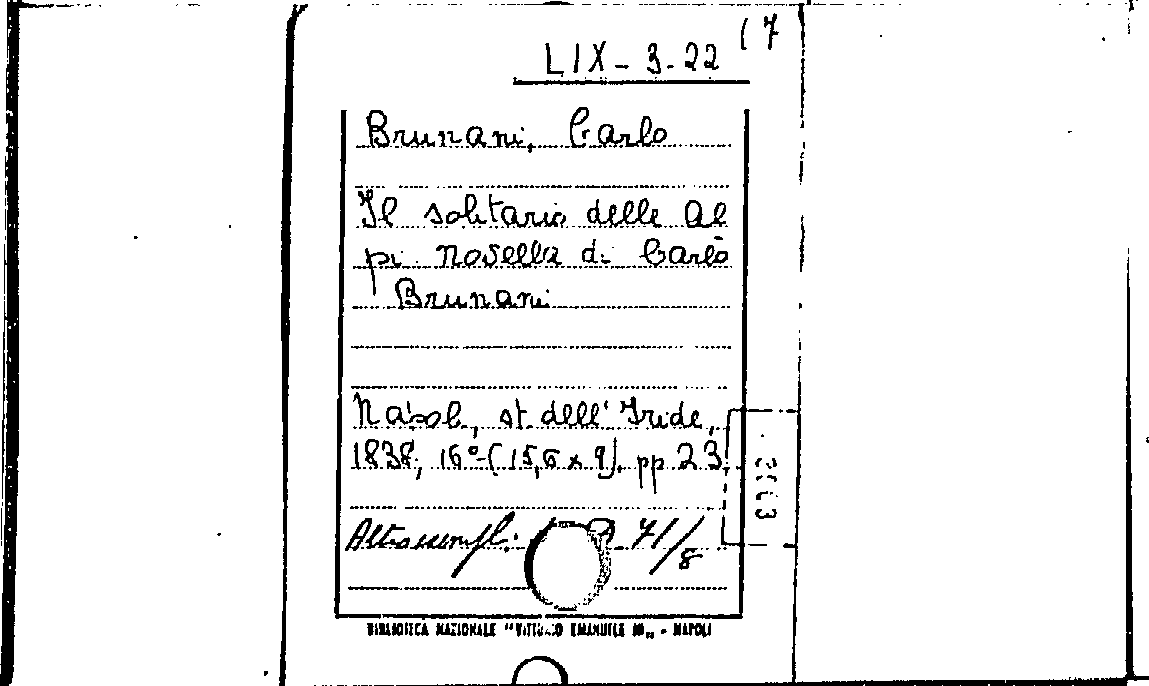 (7
LIX-3-22
Brunani, Carlo
Il solitario delle Al
pi novella di Carlo
Brunani
Napoli, st. dell' Iride,
1838, 16°-(15,6 x 9). pp 23.
Altro esempl: 71/8
BIBLIOTECA NAZIONALE "VITTORIO EMANUELE III" - NAPOLI